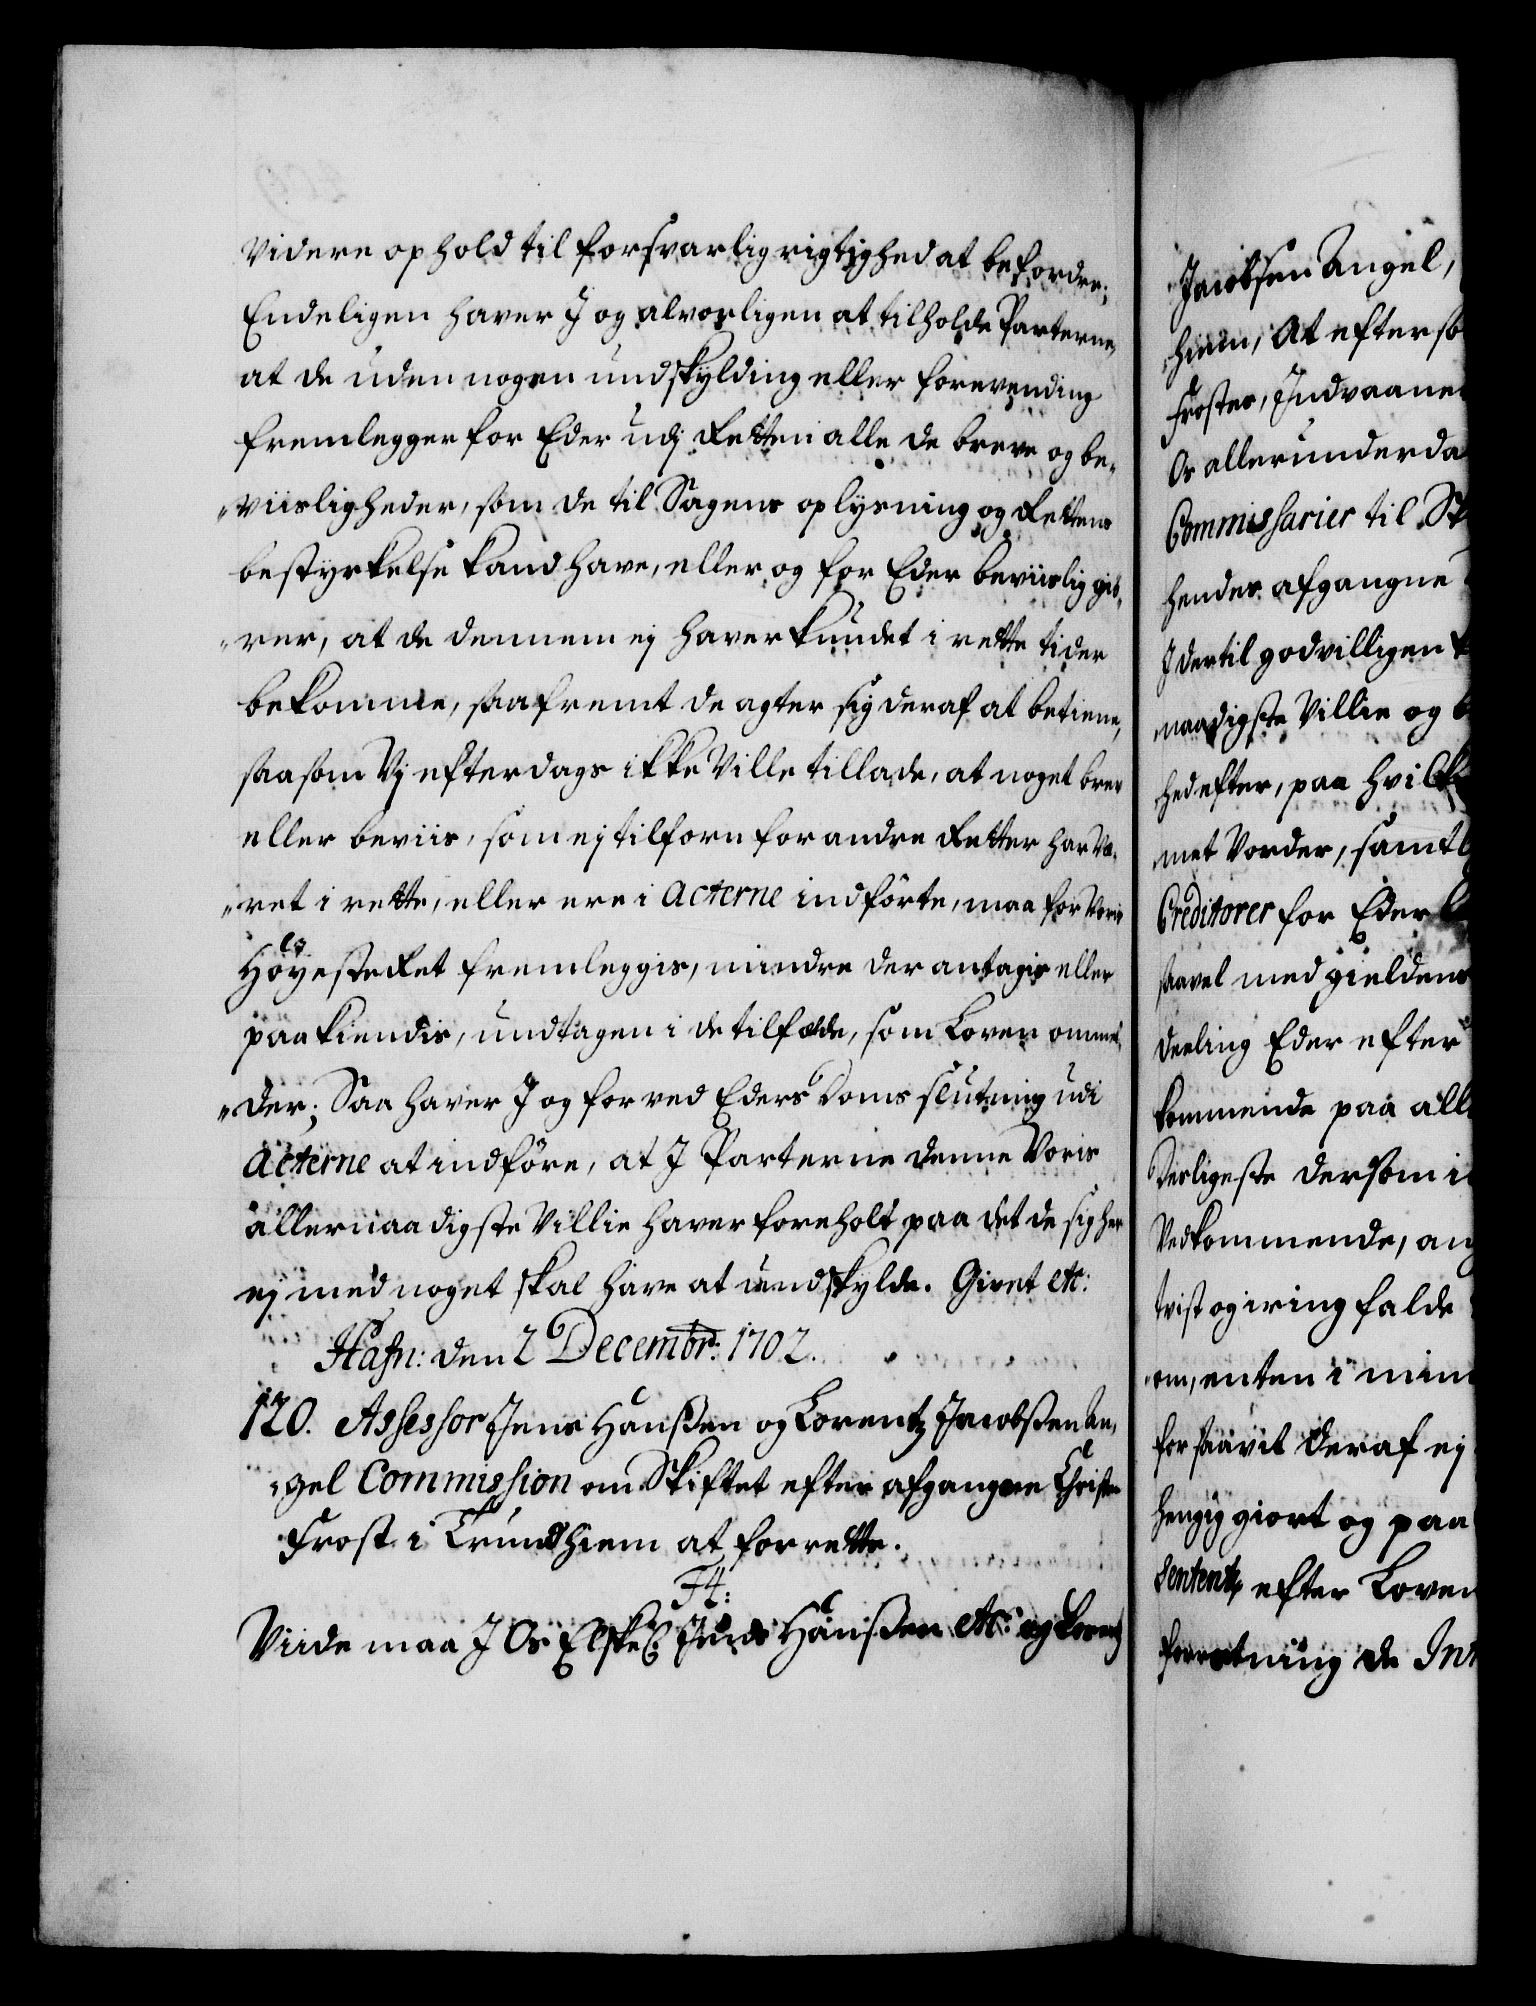 videre ophold til forsvarlig rigtighed at befordre;
Endeligen haver J og alvorligen at tilholde Parterne,
at de uden nogen undskylding eller forevending
fremlegger for Eder udj Retten alle de breve og be-
viisligheder, som de til Sagens oplysning og Rettens
bestyrkelse kand have, eller og for Eder beviislig giö-
rer, at de dennem ej haver kundet i rette tider
bekomme, saafremt de agter sig deraf at betiene,
saasom Vj efterdags ikke Ville tillade, at noget brev
eller beviis, som ej tilforn for andre Retter har Væ-
ret i rette, eller ere i Acterne indförte, maa for Voris
HöyesteRet fremleggis, mindre der antagis eller
paakiendis, undtagen i de tilfælde, som Loven ommel-
der; Saa haver J og for ved Eders Doms slutning udi
Acterne at indföre, at J Parterne denne Voris
allernaadigste Villie haver foreholt paa det de sig her
ej med noget skal have at undskylde. Givet etc:
Hafn: den 2 Decembr: 1702.
120. Assessor Jens Hanßen og Lorentz Jacobßen An-
gel Commission om Skiftet efter afgangne Christen
Frost i Trundhiem at forrette.
F4:
Viide maa J Os Elskel: Jens Hanßen etc: og Lorentz
Jacobsen Angel,
hiem, At eftersom
Frostes, Indvaaner
Os allerunderda
Commissarier til Sk
hendes afgangne
J dertil godvilligen
naadigste Villie og b
hed efter, paa hvilke
met Vorder, samtl
Creditorer for Eder
saavel med gieldens
deeling Eder efter
kommende paa all
Desligeste dersom i
Vedkommende, ang
tvist og irring falde
om, enten i min
for saavit deraf ej
hengig giort og paa
Sententz efter Loven
forretning de Int